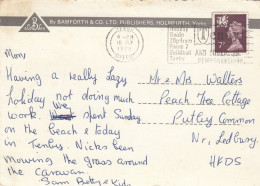 By BAMFORTH & CO. LTD. PUBLISHERS, HOLMFIRTH, Yorks.
Mon
Having a really lazy
holiday not doing much
work. We spent Sunday
on the Beach & today
in Tenby. Nicks been
mowing the grass around
the caravan.
Sam Betty & Kids
Mr & Mrs Walters
Peach Tree Cottage
Putley Common
Nr, Ledbury
HFDS